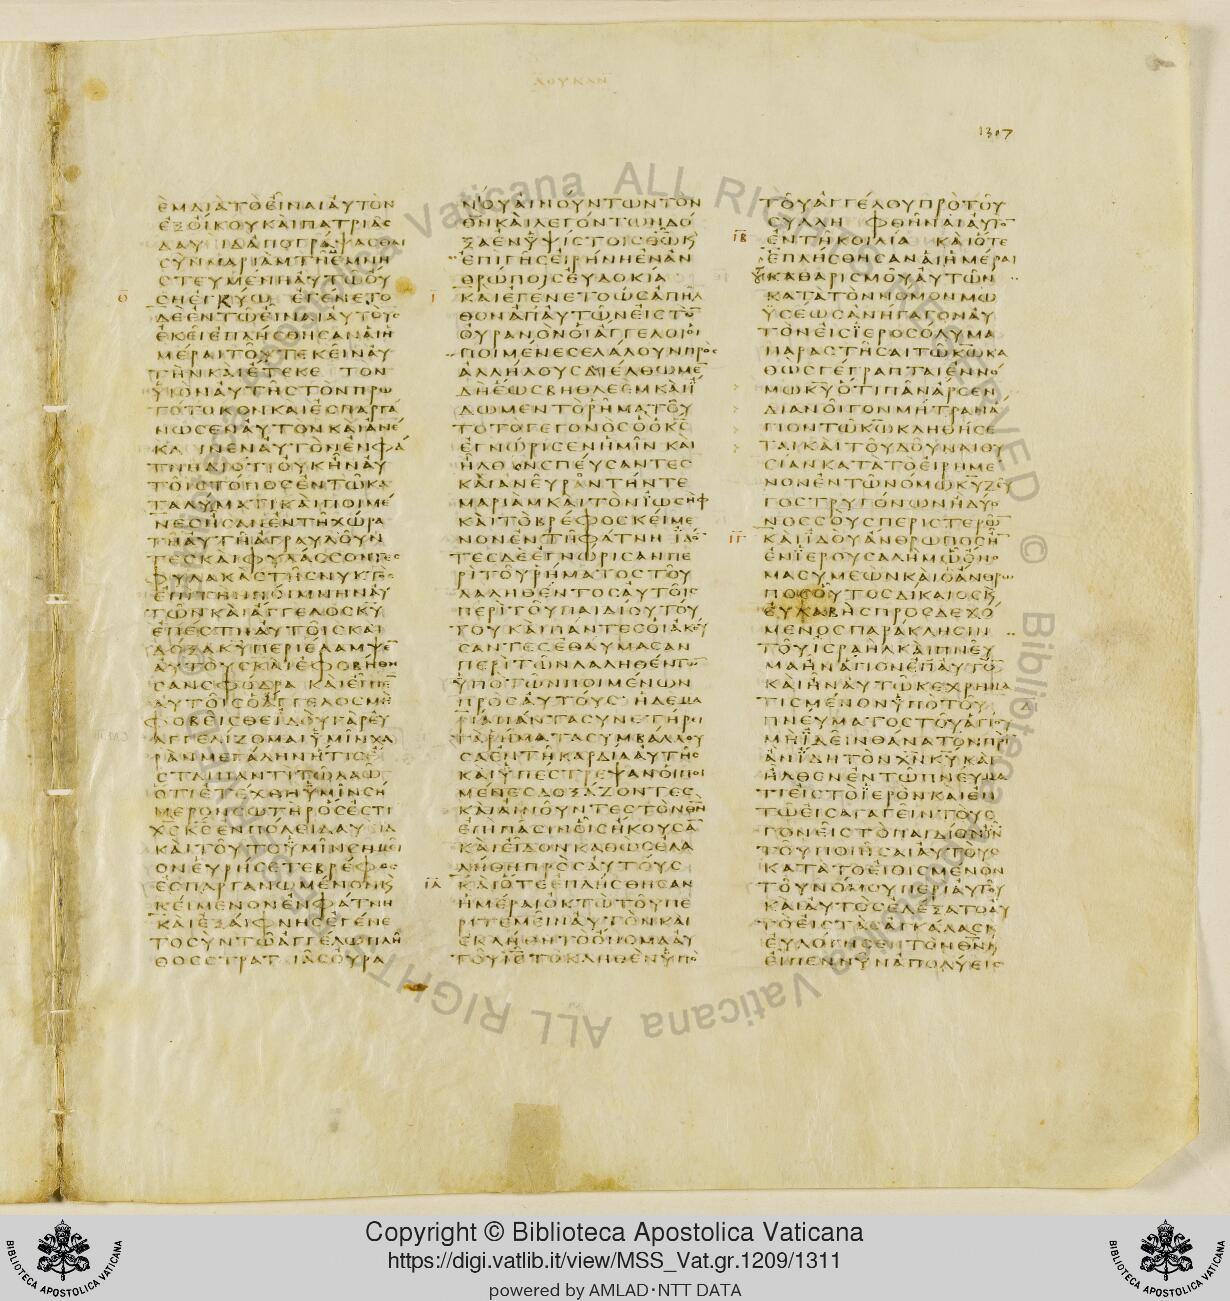 ΚΑΤΑ ΛΟΥΚΑΝ
1307
ΕΜ ΔΙΑ ΤΟ ΕΙΝΑΙ ΑΥΤΟΝ
ΕΞ ΟΙΚΟΥ ΚΑΙ ΠΑΤΡΙΑΣ
ΔΑΥΙΔ ΑΠΟΓΡΑΨΑΣΘΑΙ
ΣΥΝ ΜΑΡΙΑΜ ΤΗ ΕΜΝΗ
ΣΤΕΥΜΕΝΗ ΑΥΤΩ ΟΥ
ΣΗ ΕΓΚΥΩ ΕΓΕΝΕΤΟ
ΔΕ ΕΝ ΤΩ ΕΙΝΑΙ ΑΥΤΟΥΣ
ΕΚΕΙ ΕΠΛΗΣΘΗΣΑΝ ΑΙ Η
ΜΕΡΑΙ ΤΟΥ ΤΕΚΕΙΝ ΑΥ
ΤΗΝ ΚΑΙ ΕΤΕΚΕ ΤΟΝ
ΥΙΟΝ ΑΥΤΗΣ ΤΟΝ ΠΡΩ
ΤΟΤΟΚΟΝ ΚΑΙ ΕΣΠΑΡΓΑ
ΝΩΣΕΝ ΑΥΤΟΝ ΚΑΙ ΑΝΕ
ΚΛΙΝΕΝ ΑΥΤΟΝ ΕΝ ΦΑ
ΤΝΗ ΔΙΟΤΙ ΟΥΚ ΗΝ ΑΥ
ΤΟΙΣ ΤΟΠΟΣ ΕΝ ΤΩ ΚΑ
ΤΑΛΥΜΑΤΙ ΚΑΙ ΠΟΙΜΕ
ΝΕΣ ΗΣΑΝ ΕΝ ΤΗ ΧΩΡΑ
ΤΗ ΑΥΤΗ ΑΓΡΑΥΛΟΥΝ
ΤΕΣ ΚΑΙ ΦΥΛΑΣΣΟΝΤΕΣ
ΦΥΛΑΚΑΣ ΤΗΣ ΝΥΚΤΟΣ
ΕΠΙ ΤΗΝ ΠΟΙΜΝΗΝ ΑΥ
ΤΩΝ ΚΑΙ ΑΓΓΕΛΟΣ ΚΥ
ΕΠΕΣΤΗ ΑΥΤΟΙΣ ΚΑΙ
ΔΟΞΑ ΚΥ ΠΕΡΙΕΛΑΜΨΕ̅
ΑΥΤΟΥΣ ΚΑΙ ΕΦΟΒΗΘΗ
ΣΑΝ ΣΦΟΔΡΑ ΚΑΙ ΕΙΠΕ̅
ΑΥΤΟΙΣ Ο ΑΓΓΕΛΟΣ ΜΗ
ΦΟΒΕΙΣΘΕ ΙΔΟΥ ΓΑΡ ΕΥ
ΑΓΓΕΛΙΖΟΜΑΙ ΥΜΙΝ ΧΑ
ΡΑΝ ΜΕΓΑΛΗΝ ΗΤΙΣ Ε
ΣΤΑΙ ΠΑΝΤΙ ΤΩ ΛΑΩ
ΟΤΙ ΕΤΕΧΘΗ ΥΜΙΝ ΣΗ
ΜΕΡΟΝ ΣΩΤΗΡ ΟΣ ΕΣΤΙ
ΧΣ ΚΣ ΕΝ ΠΟΛΕΙ ΔΑΥΙΔ
ΚΑΙ ΤΟΥΤΟ ΥΜΙΝ ΣΗΜΕΙ
ΟΝ ΕΥΡΗΣΕΤΕ ΒΡΕΦΟΣ
ΕΣΠΑΡΓΑΝΩΜΕΝΟΝ Κ
ΚΕΙΜΕΝΟΝ ΕΝ ΦΑΤΝΗ
ΚΑΙ ΕΞΑΙΦΝΗΣ ΕΓΕΝΕ
ΤΟ ΣΥΝ ΤΩ ΑΓΓΕΛΩ ΠΛΗ
ΘΟΣ ΣΤΡΑΤΙΑΣ ΟΥΡΑ
ΝΟΥ ΑΙΝΟΥΝΤΩΝ ΤΟΝ
ΘΝ ΚΑΙ ΛΕΓΟΝΤΩΝ ΔΟ
ΞΑ ΕΝ ΥΨΙΣΤΟΙΣ ΘΩ Κ
ΕΠΙ ΓΗΣ ΕΙΡΗΝΗ ΕΝ ΑΝ
ΘΡΩΠΟΙΣ ΕΥΔΟΚΙΑ
ΚΑΙ ΕΓΕΝΕΤΟ ΩΣ ΑΠΗΛ
ΘΟΝ ΑΠ ΑΥΤΩΝ ΕΙΣ ΤΟ̅
ΟΥΡΑΝΟΝ ΟΙ ΑΓΓΕΛΟΙ ΟΙ
ΠΟΙΜΕΝΕΣ ΕΛΑΛΟΥΝ ΠΡΟΣ
ΑΛΛΗΛΟΥΣ ΔΙΕΛΘΩΜΕ̅
ΔΗ ΕΩΣ ΒΗΘΛΕΕΜ ΚΑΙ Ι
ΔΩΜΕΝ ΤΟ ΡΗΜΑ ΤΟΥ
ΤΟ ΤΟ ΓΕΓΟΝΟΣ Ο Ο ΚΣ
ΕΓΝΩΡΙΣΕΝ ΗΜΙΝ ΚΑΙ
ΗΛΘΟΝ ΣΠΕΥΣΑΝΤΕΣ
ΚΑΙ ΑΝΕΥΡΑΝ ΤΗΝ ΤΕ
ΜΑΡΙΑΜ ΚΑΙ ΤΟΝ ΙΩΣΗΦ
ΚΑΙ ΤΟ ΒΡΕΦΟΣ ΚΕΙΜΕ
ΝΟΝ ΕΝ ΤΗ ΦΑΤΝΗ ΙΔΟ̅
ΤΕΣ ΔΕ ΕΓΝΩΡΙΣΑΝ ΠΕ
ΡΙ ΤΟΥ ΡΗΜΑΤΟΣ ΤΟΥ
ΛΑΛΗΘΕΝΤΟΣ ΑΥΤΟΙΣ
ΠΕΡΙ ΤΟΥ ΠΑΙΔΙΟΥ ΤΟΥ
ΤΟΥ ΚΑΙ ΠΑΝΤΕΣ ΟΙ ΑΚΟΥ
ΣΑΝΤΕΣ ΕΘΑΥΜΑΣΑΝ
ΠΕΡΙ ΤΩΝ ΛΑΛΗΘΕΝΤΩ̅
ΥΠΟ ΤΩΝ ΠΟΙΜΕΝΩΝ
ΠΡΟΣ ΑΥΤΟΥΣ Η ΔΕ ΜΑ
ΡΙΑ ΠΑΝΤΑ ΣΥΝΕΤΗΡΕΙ
ΤΑ ΡΗΜΑΤΑ ΣΥΜΒΑΛΛΟΥ
ΣΑ ΕΝ ΤΗ ΚΑΡΔΙΑ ΑΥΤΗΣ
ΚΑΙ ΥΠΕΣΤΡΕΨΑΝ ΟΙ ΠΟΙ
ΜΕΝΕΣ ΔΟΞΑΖΟΝΤΕΣ
ΚΑΙ ΑΙΝΟΥΝΤΕΣ ΤΟΝ ΘΝ
ΕΠΙ ΠΑΣΙΝ ΟΙΣ ΗΚΟΥΣΑ̅
ΚΑΙ ΕΙΔΟΝ ΚΑΘΩΣ ΕΛΑ
ΛΗΘΗ ΠΡΟΣ ΑΥΤΟΥΣ
ΚΑΙ ΟΤΕ ΕΠΛΗΣΘΗΣΑΝ
ΗΜΕΡΑΙ ΟΚΤΩ ΤΟΥ ΠΕ
ΡΙΤΕΜΕΙΝ ΑΥΤΟΝ ΚΑΙ
ΕΚΛΗΘΗ ΤΟ ΟΝΟΜΑ ΑΥ
ΤΟΥ ΙΣ ΤΟ ΚΛΗΘΕΝ ΥΠΟ
ΤΟΥ ΑΓΓΕΛΟΥ ΠΡΟ ΤΟΥ
ΣΥΛΛΗΦΘΗΝΑΙ ΑΥΤΟ̅
ΕΝ ΤΗ ΚΟΙΛΙΑ ΚΑΙ ΟΤΕ
ΕΠΛΗΣΘΗΣΑΝ ΑΙ ΗΜΕΡΑΙ
ΤΟΥ ΚΑΘΑΡΙΣΜΟΥ ΑΥΤΩΝ
ΚΑΤΑ ΤΟΝ ΝΟΜΟΝ ΜΩ
ΥΣΕΩΣ ΑΝΗΓΑΓΟΝ ΑΥ
ΤΟΝ ΕΙΣ ΙΕΡΟΣΟΛΥΜΑ
ΠΑΡΑΣΤΗΣΑΙ ΤΩ ΚΩ ΚΑ
ΘΩΣ ΓΕΓΡΑΠΤΑΙ ΕΝ ΝΟ
ΜΩ ΚΥ ΟΤΙ ΠΑΝ ΑΡΣΕΝ
ΔΙΑΝΟΙΓΟΝ ΜΗΤΡΑΝ Α
ΓΙΟΝ ΤΩ ΚΩ ΚΛΗΘΗΣΕ
ΤΑΙ ΚΑΙ ΤΟΥ ΔΟΥΝΑΙ ΘΥ
ΣΙΑΝ ΚΑΤΑ ΤΟ ΕΙΡΗΜΕ
ΝΟΝ ΕΝ ΤΩ ΝΟΜΩ ΚΥ ΖΕΥ
ΓΟΣ ΤΡΥΓΟΝΩΝ Η ΔΥΟ
ΝΟΣΣΟΥΣ ΠΕΡΙΣΤΕΡΩ̅
ΚΑΙ ΙΔΟΥ ΑΝΘΡΩΠΟΣ Η̅
ΕΝ ΙΕΡΟΥΣΑΛΗΜ Ω ΟΝΟ
ΜΑ ΣΥΜΕΩΝ ΚΑΙ Ο ΑΝΘΡΩ
ΠΟΣ ΟΥΤΟΣ ΔΙΚΑΙΟΣ Κ
ΕΥΛΑΒΗΣ ΠΡΟΣΔΕΧΟ
ΜΕΝΟΣ ΠΑΡΑΚΛΗΣΙΝ
ΤΟΥ ΙΣΡΑΗΛ ΚΑΙ ΠΝΕΥ
ΜΑ ΗΝ ΑΓΙΟΝ ΕΠ ΑΥΤΟ̅
ΚΑΙ ΗΝ ΑΥΤΩ ΚΕΧΡΗΜΑ
ΤΙΣΜΕΝΟΝ ΥΠΟ ΤΟΥ
ΠΝΕΥΜΑΤΟΣ ΤΟΥ ΑΓΙΟΥ
ΜΗ ΙΔΕΙΝ ΘΑΝΑΤΟΝ ΠΡΙ̅
ΑΝ ΙΔΗ ΤΟΝ ΧΝ ΚΥ ΚΑΙ
ΗΛΘΕΝ ΕΝ ΤΩ ΠΝΕΥΜΑ
ΤΙ ΕΙΣ ΤΟ ΙΕΡΟΝ ΚΑΙ ΕΝ
ΤΩ ΕΙΣΑΓΑΓΕΙΝ ΤΟΥΣ
ΓΟΝΕΙΣ ΤΟ ΠΑΙΔΙΟΝ ΙΝ
ΤΟΥ ΠΟΙΗΣΑΙ ΑΥΤΟΥΣ
ΚΑΤΑ ΤΟ ΕΙΘΙΣΜΕΝΟΝ
ΤΟΥ ΝΟΜΟΥ ΠΕΡΙ ΑΥΤΟΥ
ΚΑΙ ΑΥΤΟΣ ΕΔΕΞΑΤΟ ΑΥ
ΤΟ ΕΙΣ ΤΑΣ ΑΓΚΑΛΑΣ Κ
ΕΥΛΟΓΗΣΕΝ ΤΟΝ ΘΝ Κ
ΕΙΠΕΝ ΝΥΝ ΑΠΟΛΥΕΙΣ
Copyright © Biblioteca Apostolica Vaticana
https://digi.vatlib.it/view/MSS_Vat.gr.1209/1311
powered by AMLAD·NTT DATA